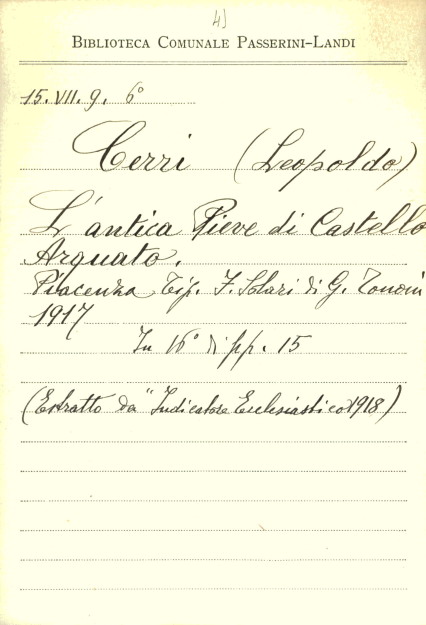 4)
BIBLIOTECA COMUNALE PASSERINI-LANDI
15. VII. 9. 6°
Cerri (Leopoldo)
L'antica Pieve di Castello
Arquato.
Piacenza Tip. F. Solari di G. Tononi
1917
In 16° di pp. 15
(Estratto da "Indicatore Ecclesiastico 1918)